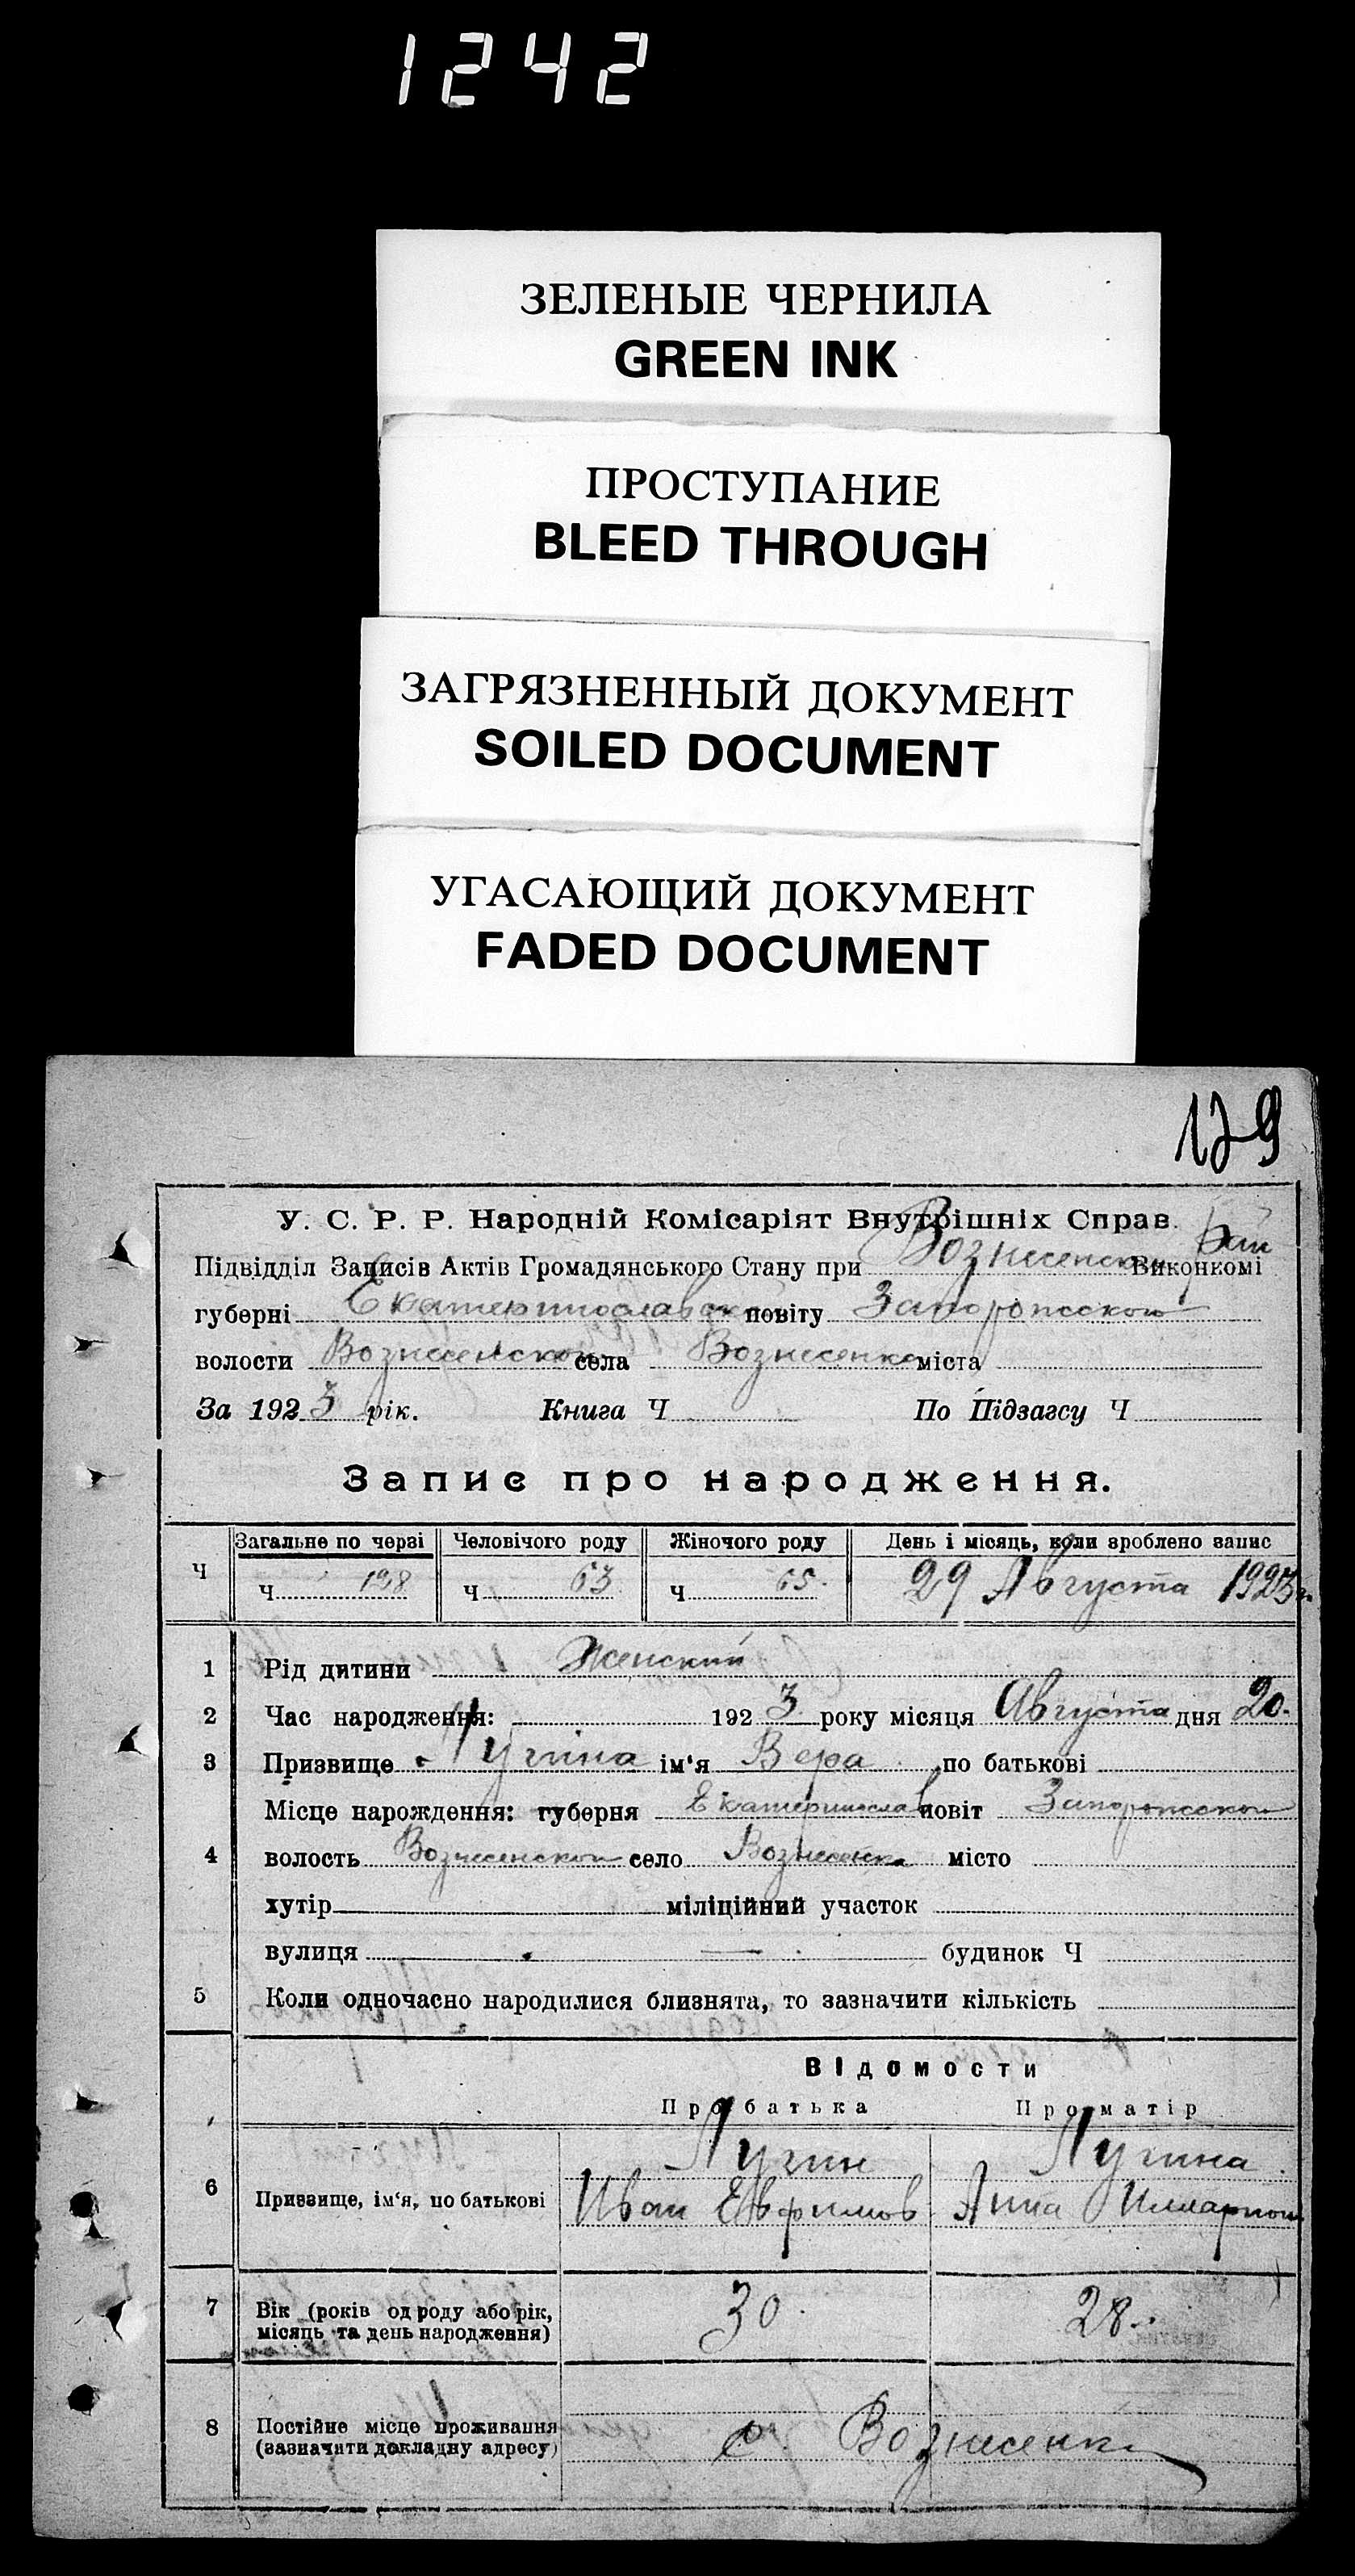 1242
ЗЕЛЕНЫЕ ЧЕРНИЛА
GREEN INK
ПРОСТУПАНИЕ
BLEED THROUGH
ЗАГРЯЗНЕННЫЙ ДОКУМЕНТ
SOILED DOCUMENT
УГАСАЮЩИЙ ДОКУМЕНТ
FADED DOCUMENT
У. С. Р. Р. Народній Комісаріят Внутрішніх Справ.
Підвідділ Записів Актів Громадянського Стану при Вознесенском Виконкомі
губерні Екатеринославской повіту Запорожской
волости Вознесенской села Вознесенка міста
За 1923 рік. Книга Ч По Підзагсу Ч
Запис про народження.
Ч Загальне по черзі Человічого роду Жіночого роду День і місяць, коли зроблено запис
Ч 128 Ч 63 Ч 65. 29 Августа 1923 г.
1 Рід дитини Женский
2 Час народження: 1923 року місяця Августа дня 20.
3 Призвище Лугина ім'я Вера по батькові
Місце народження: губерня Екатеринослав повіт Запорожской
4 волость Вознесенской село Вознесенка місто
хутір міліційний участок
вулиця будинок Ч
5 Коли одночасно народилися близнята, то зазначити кількість
Відомости
Про батька Про матір
Лугин Лугина
6 Призвище, ім'я, по батькові Иван Евфимов Анна Илларион
7 Вік (років од роду або рік, 30. 28.
місяць та день народження)
8 Постійне місце проживання с Вознесенка
(зазначити докладну адресу)